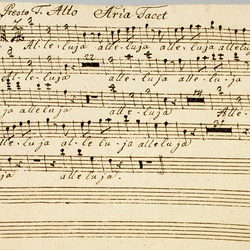 Presto T. Alto Aria Tacet
Al-le-luja alleluja alleluja allelu
Al-leluja 22 alleluja al-le-lu-ja
ja alleluja Alle-
alleluja al-le-lu-ja alleluja
ja alleluja.